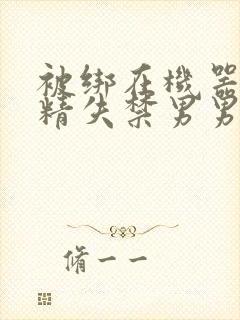 被绑在機器
精失禁男男
脩一一